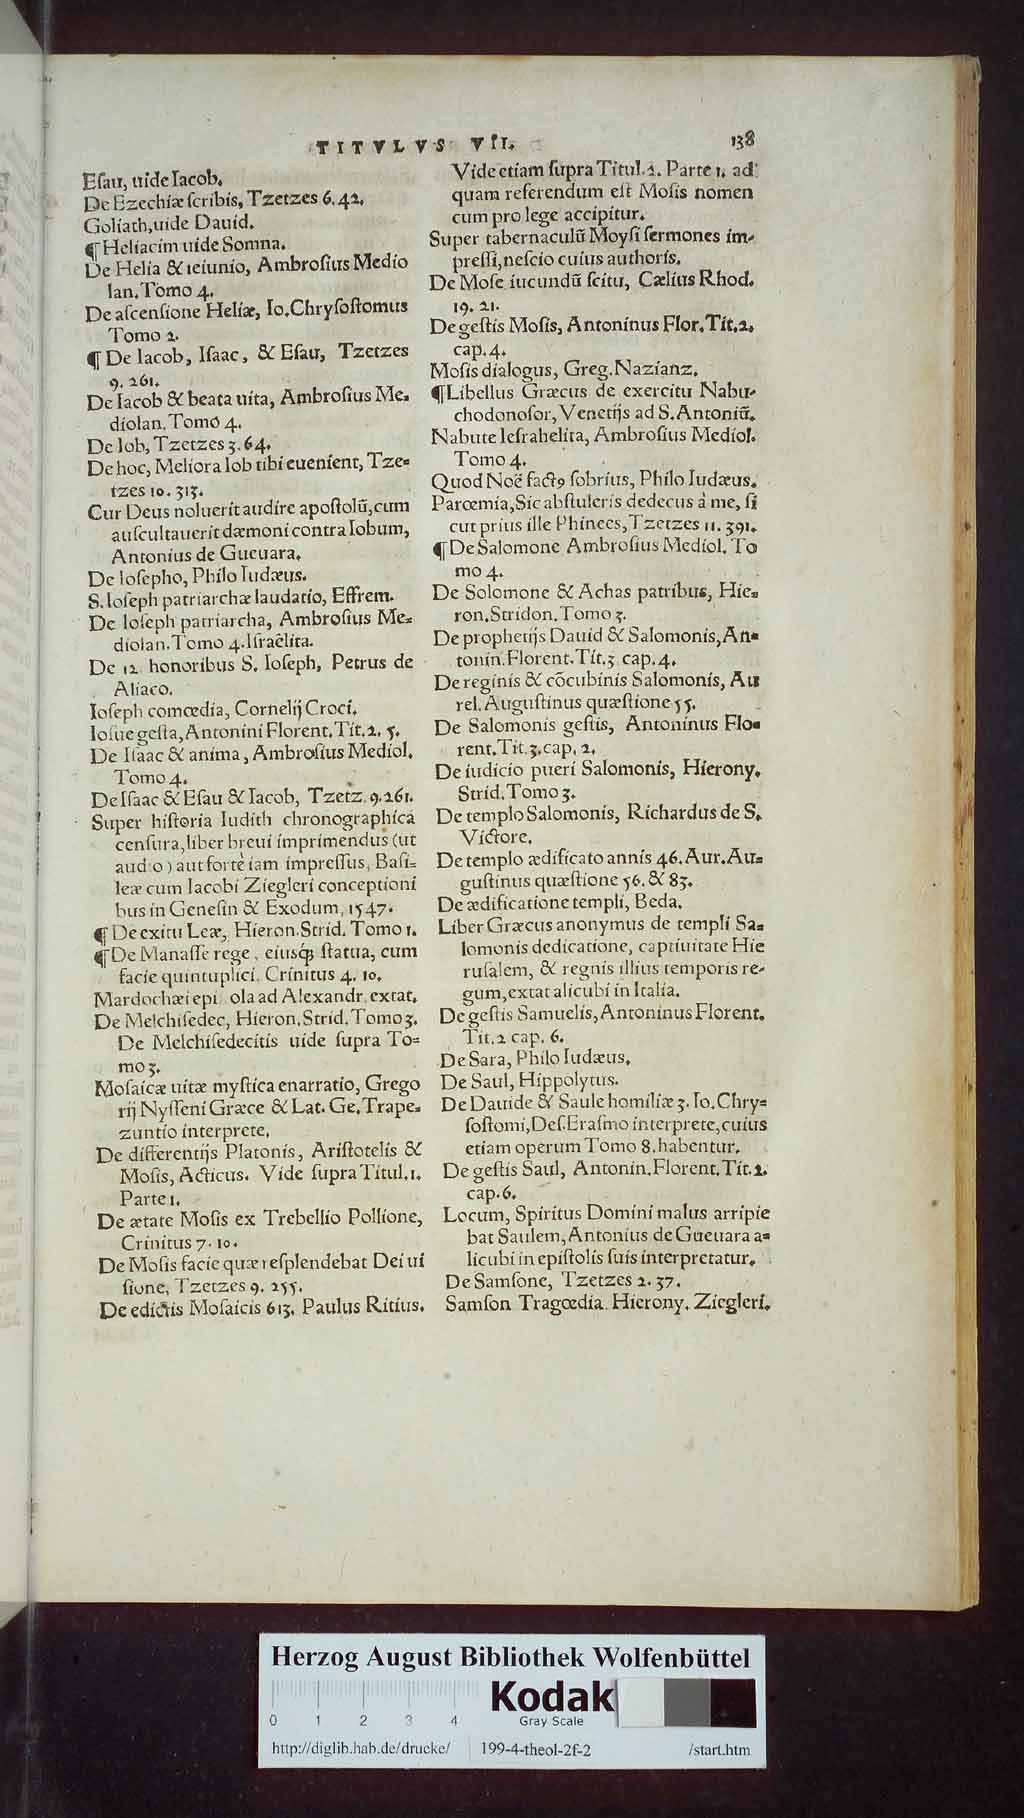 TITVLVS VII. 138
Eſau, uide Iacob.
De Ezechiæ ſcribis, Tzetzes 6.42.
Goliath, uide Dauid.
¶ Heliacim uide Somna.
De Helia & ieiunio, Ambroſius Medio
lan. Tomo 4.
De aſcenſione Heliæ, Io. Chryſoſtomus
Tomo 2.
¶ De Iacob, Iſaac, & Eſau, Tzetzes
9. 261.
De Iacob & beata uita, Ambroſius Me⸗
diolan. Tomo 4.
De Iob, Tzetzes 3.64.
De hoc, Meliora Iob tibi euenient, Tze⸗
tzes 10. 313.
Cur Deus noluerit audire apoſtolũ, cum
auſcultauerit dæmoni contra Iobum,
Antonius de Gueuara.
De Ioſepho, Philo Iudæus.
S. Ioſeph patriarchæ laudatio, Effrem.
De Ioſeph patriarcha, Ambroſius Me⸗
diolan. Tomo 4. Iſraëlita.
De 12 honoribus S. Ioſeph, Petrus de
Aliaco.
Ioſeph comœdia, Cornelij Croci.
Ioſue geſta, Antonini Florent. Tit. 2. 5.
De Iſaac & anima, Ambroſius Mediol.
Tomo 4.
De Iſaac & Eſau & Iacob, Tzetz. 9.261.
Super hiſtoria Iudith chronographica
cenſura, liber breui imprimendus (ut
audio) aut fortè iam impreſſus, Baſi⸗
leæ cum Iacobi Ziegleri conceptioni
bus in Geneſin & Exodum, 1547.
¶ De exitu Leæ, Hieron. Strid. Tomo 1.
¶ De Manaſſe rege, eiusq́; ſtatua, cum
facie quintuplici. Crinitus 4. 10.
Mardochæi epi ola ad Alexandr. extat.
De Melchiſedec, Hieron. Strid. Tomo 3.
De Melchiſedecitis uide ſupra To⸗
mo 3.
Moſaicæ uitæ myſtica enarratio, Grego
rij Nyſſeni Græce & Lat. Ge. Trape⸗
zuntio interprete.
De differentijs Platonis, Ariſtotelis &
Moſis, Acticus. Vide ſupra Titul. 1.
Parte 1.
De ætate Moſis ex Trebellio Pollione,
Crinitus 7. 10.
De Moſis facie quæ reſplendebat Dei ui
ſione, Tzetzes 9. 255.
De edictis Moſaicis 613. Paulus Ritius.
Vide etiam ſupra Titul. 2. Parte 1. ad
quam referendum eſt Moſis nomen
cum pro lege accipitur.
Super tabernaculũ Moyſi ſermones im⸗
preſſi, neſcio cuius authoris.
De Moſe iucundũ ſcitu, Cælius Rhod.
19. 21.
De geſtis Moſis, Antoninus Flor. Tit. 2.
cap. 4.
Moſis dialogus, Greg. Nazianz.
¶ Libellus Græcus de exercitu Nabu⸗
chodonoſor, Venetijs ad S. Antoniũ.
Nabute Ieſrahelita, Ambroſius Mediol.
Tomo 4.
Quod Noë factꝰ ſobrius, Philo Iudæus.
Parœmia, Sic abſtuleris dedecus à me, ſi
cut prius ille Phinees, Tzetzes 11. 391.
¶ De Salomone Ambroſius Mediol. To
mo 4.
De Solomone & Achas patribus, Hie⸗
ron. Stridon. Tomo 3.
De prophetijs Dauid & Salomonis, An⸗
tonin. Florent. Tit. 3 cap. 4.
De reginis & cõcubinis Salomonis, Au
rel. Auguſtinus quæſtione 55.
De Salomonis geſtis, Antoninus Flo⸗
rent. Tit. 3. cap. 2.
De iudicio pueri Salomonis, Hierony.
Strid. Tomo 3.
De templo Salomonis, Richardus de S.
Victore.
De templo ædificato annis 46. Aur. Au⸗
guſtinus quæſtione 56. & 83.
De ædificatione templi, Beda.
Liber Græcus anonymus de templi Sa⸗
lomonis dedicatione, captiuitate Hie
ruſalem, & regnis illius temporis re⸗
gum, extat alicubi in Italia.
De geſtis Samuelis, Antoninus Florent.
Tit. 2 cap. 6.
De Sara, Philo Iudæus.
De Saul, Hippolytus.
De Dauide & Saule homiliæ 3. Io. Chry⸗
ſoſtomi, Deſ. Eraſmo interprete, cuius
etiam operum Tomo 8. habentur.
De geſtis Saul, Antonin. Florent. Tit. 2.
cap. 6.
Locum, Spiritus Domini malus arripie
bat Saulem, Antonius de Gueuara a⸗
licubi in epiſtolis ſuis interpretatur.
De Samſone, Tzetzes 2. 37.
Samſon Tragœdia Hierony. Ziegleri.
Herzog August Bibliothek Wolfenbüttel
0 1 2 3 4
Kodak
Gray Scale
http://diglib.hab.de/drucke/ 199-4-theol-2f-2 /start.htm